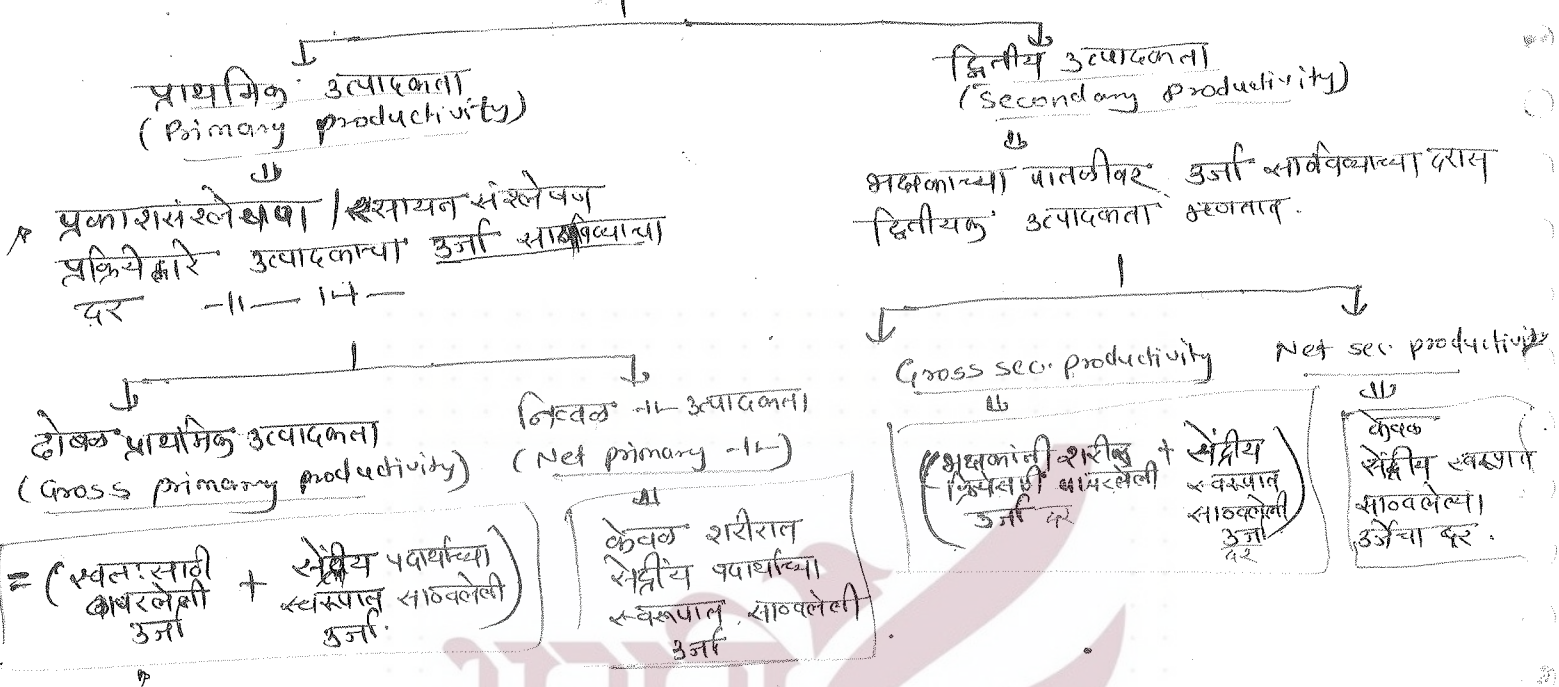 प्राथमिक उत्पादकता
(Primary productivity)
प्रकाशसंश्लेषण / रसायन संश्लेषण
प्रक्रियेद्वारे उत्पादकाचा उर्जा साठविण्याचा
दर -॥- -॥-
ढोबळ प्राथमिक उत्पादकता
(Gross primary productivity)
= (स्वतःसाठी वापरलेली उर्जा + सेंद्रीय पदार्थाच्या स्वरूपात साठवलेली उर्जा.)
निव्वळ -॥- उत्पादकता
(Net primary -॥-)
केवळ शरीरात
सेंद्रीय पदार्थाच्या
स्वरूपात साठवलेली
उर्जा
द्वितीय उत्पादकता
(Secondary productivity)
भक्षकाच्या पातळीवर उर्जा साठविण्याच्या दरास
द्वितीयक उत्पादकता म्हणतात.
Gross sec. productivity
(भक्षकांनी शरीर क्रियेसाठी वापरलेली उर्जा दर + सेंद्रीय स्वरूपात साठवलेली उर्जा दर)
Net sec. productivity
केवळ
सेंद्रीय स्वरूपात
साठवलेल्या
उर्जेचा दर.